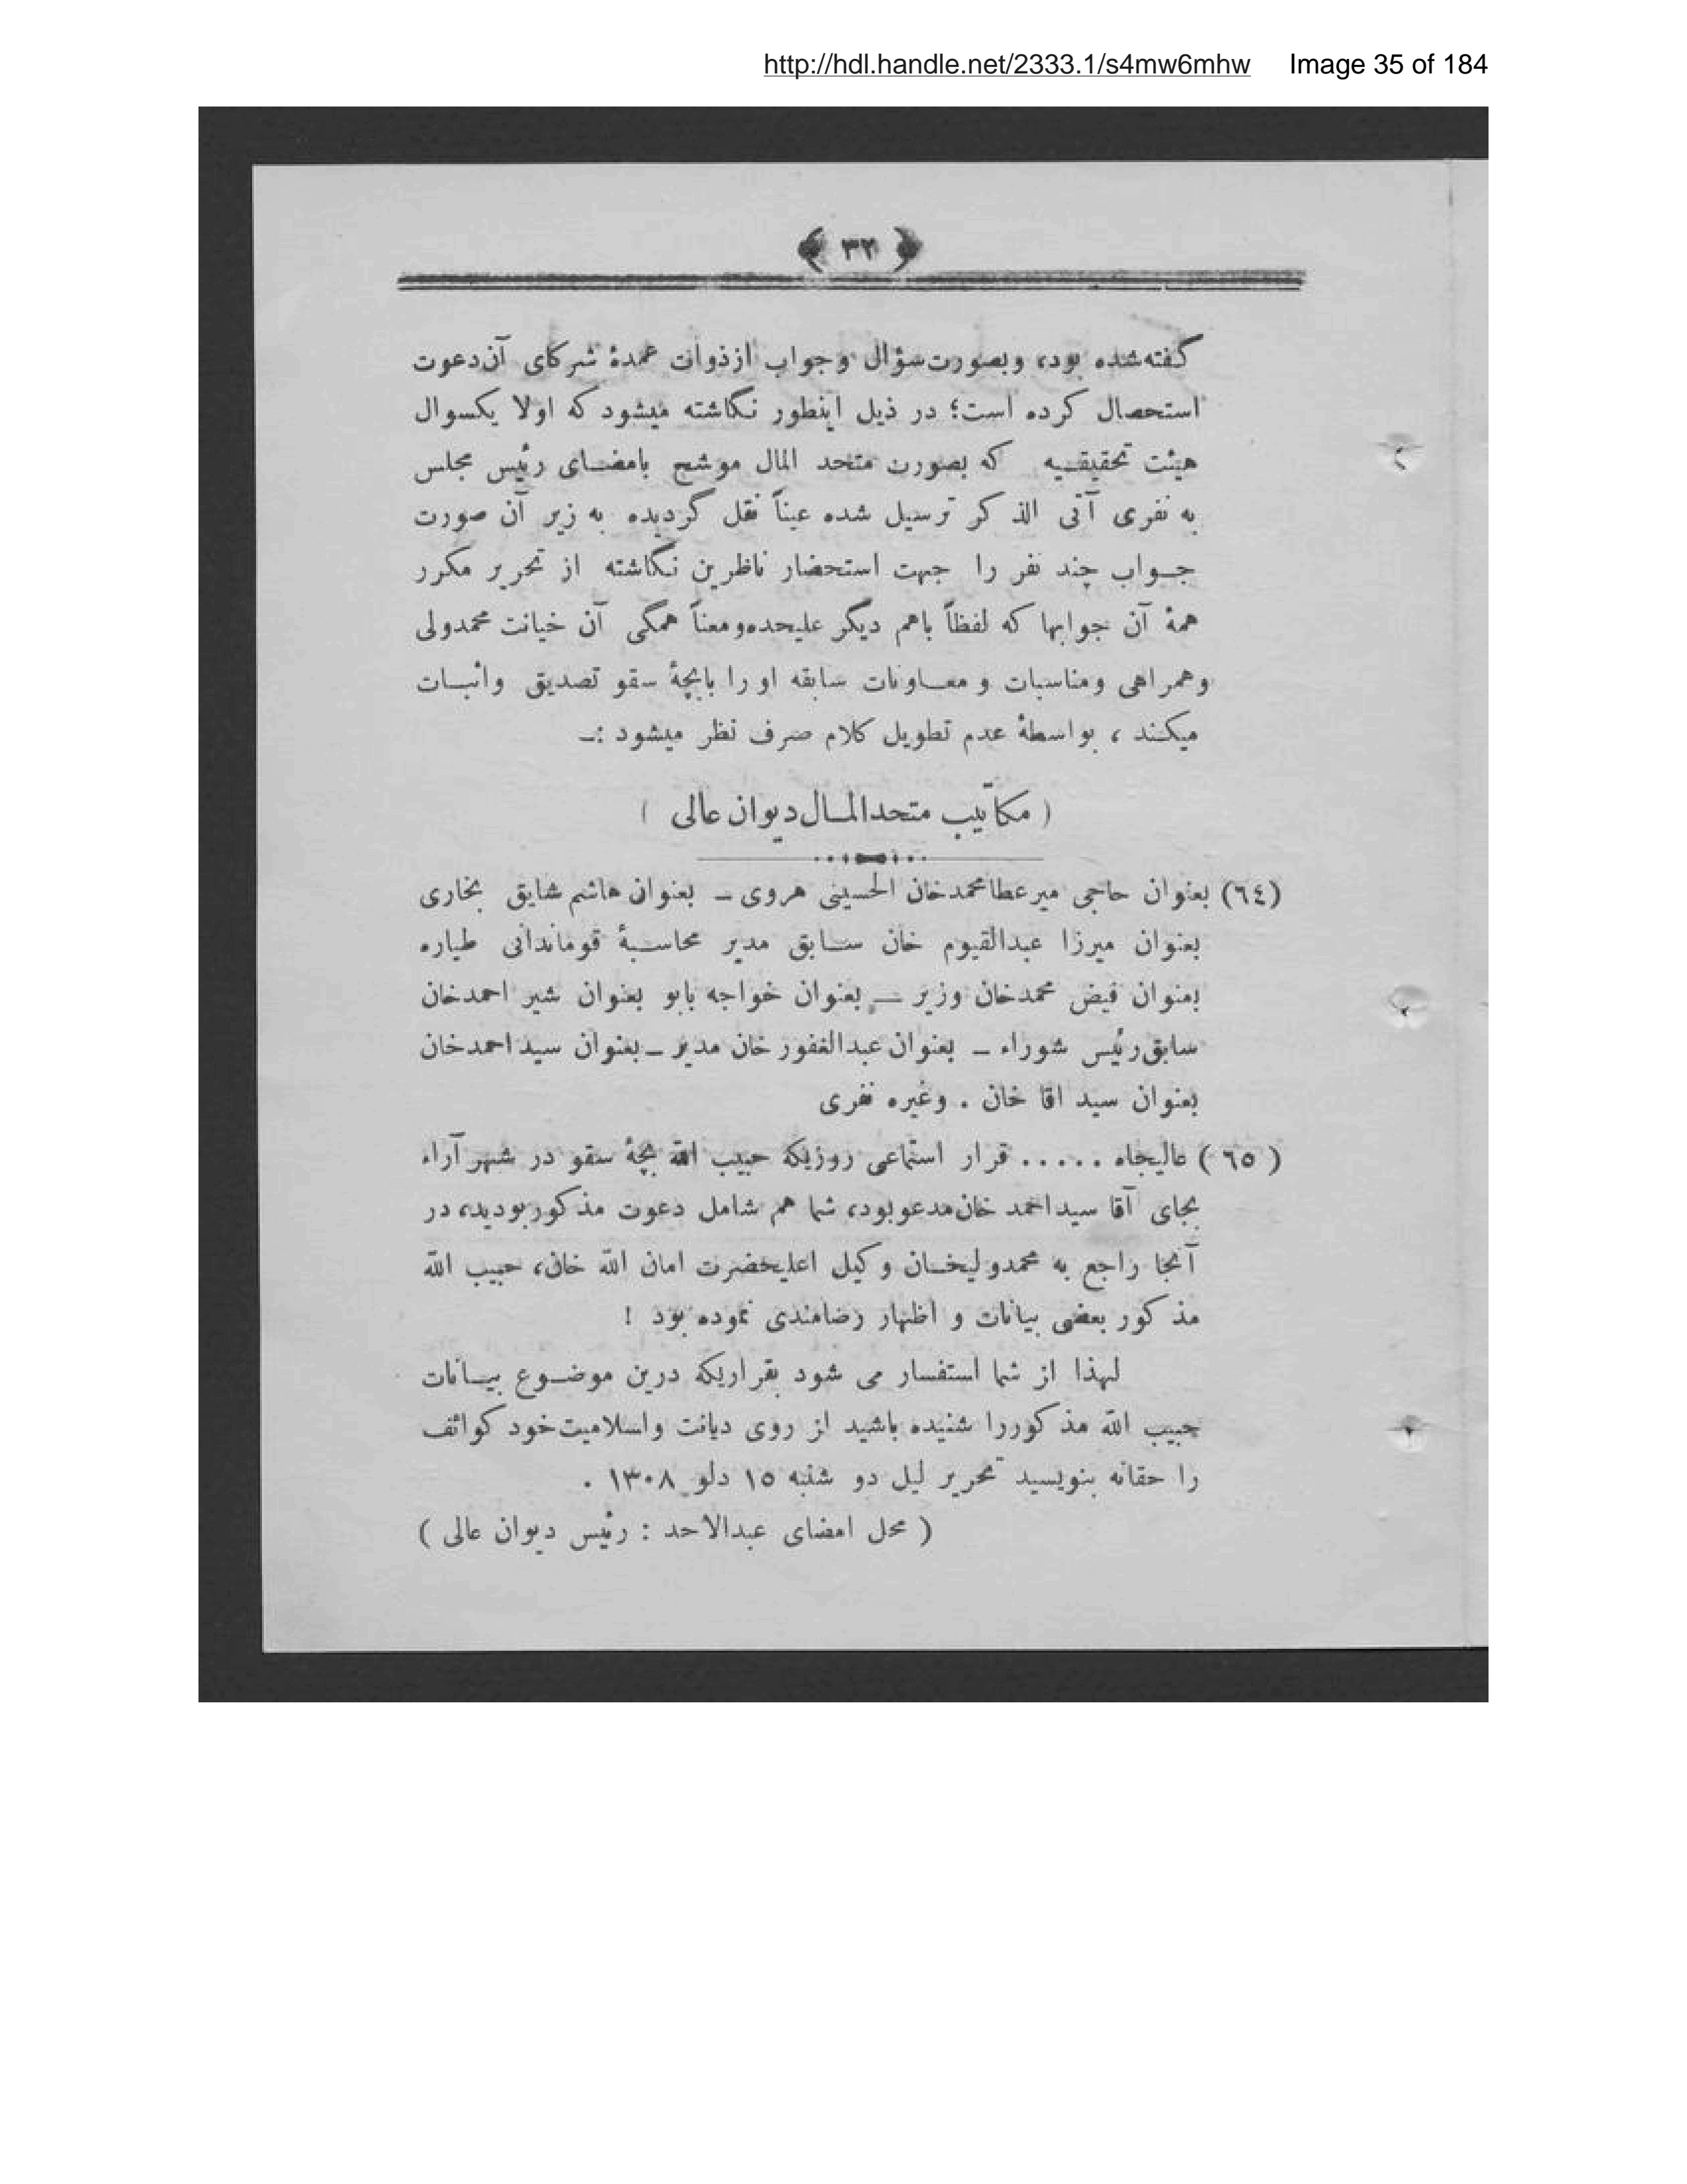 http://hdl.handle.net/2333.1/s4mw6mhw Image 35 of 184
﴿ ٣٢ ﴾
گفته‌شده بود، وبصورت‌سؤال وجواب ازذوات عمدهٔ شرکای آن‌دعوت
استحصال کرده است؛ در ذیل اینطور نگاشته میشود که اولا یکسوال
هیئت تحقیقـیه که بصورت متحد المال موشح بامضـای رئیس مجلس
به نفری آتی الذ کر ترسیل شده عیناً نقل گردیده به زیر آن صورت
جـواب چند نفر را جهت استحضار ناظرین نگاشته از تحریر مکرر
همهٔ آن جوابها که لفظاً باهم دیگر علیحده‌ومعناً همگی آن خیانت محمدولی
وهمراهی ومناسبات و معـاونات سابقه او را بابچهٔ سقو تصدیق واثبـات
میکـنند ، بواسطهٔ عدم تطویل کلام صرف نظر میشود :ـ
( مکاتیب متحدالمـال دیوان عالی )
(٦٤) بعنوان حاجی میرعطامحمدخان الحسینی هروی ـ بعنوان هاشم شایق بخاری
بعنوان میرزا عبدالقیوم خان سـابق مدیر محاسـبهٔ قوماندانی طیاره
بعنوان فیض محمدخان وزیر ــ بعنوان خواجه بابو بعنوان شیر احمدخان
سابق‌رئیس شوراء ـ بعنوان عبدالغفور خان مدیر ـ بعنوان سیداحمدخان
بعنوان سید اقا خان . وغیره نفری
( ٦٥ ) عالیجاه ..... قرار استماعی روزیکه حبیب الله بچهٔ سقو در شهر آراء
بجای آقا سیداحمد خان‌مدعوبود، شما هم شامل دعوت مذکوربودید، در
آنجا راجع به محمدولیخـان وکیل اعلیحضرت امان الله خان، حبیب الله
مذ کور بعضی بیانات و اظهار رضامندی نموده بود !
لهذا از شما استفسار می شود بقراریکه درین موضـوع بیـانات
حبیب الله مذ کوررا شنیده باشید از روی دیانت واسلامیت‌خود کوائف
را حقانه بنویسید تحریر لیل دو شنبه ١٥ دلو ١٣٠٨ .
( محل امضای عبدالاحد : رئیس دیوان عالی )